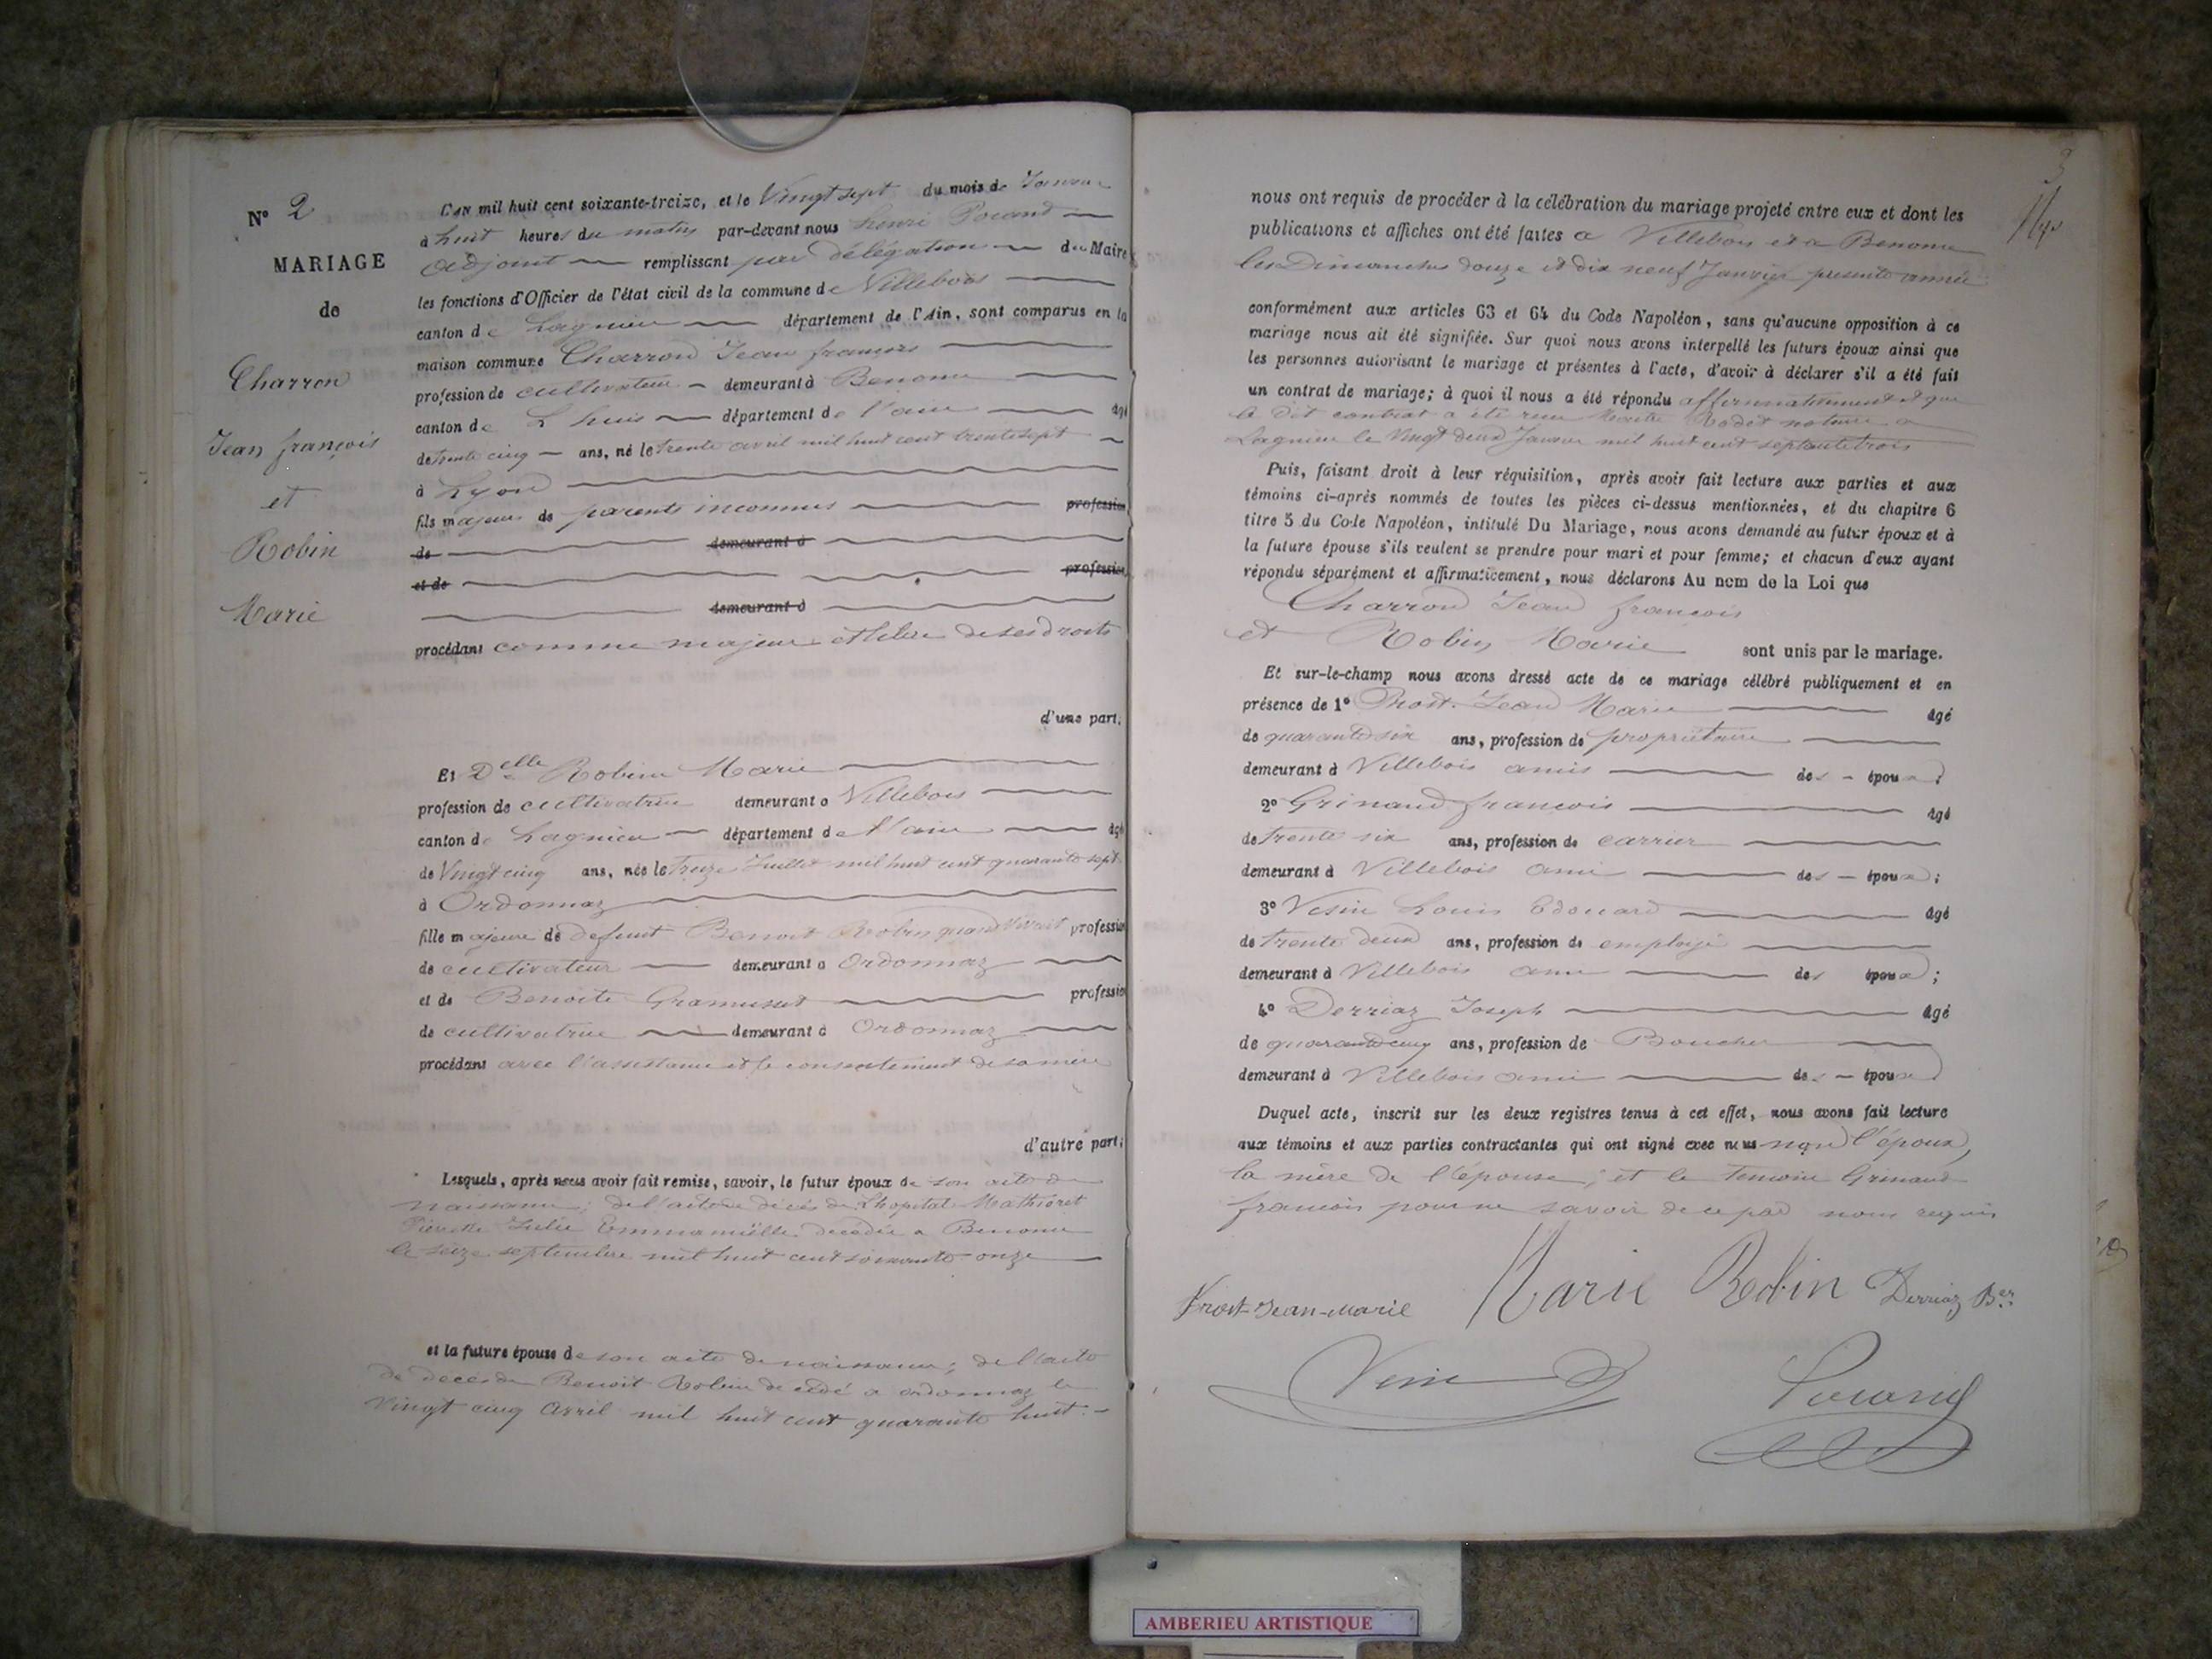 N° 2
MARIAGE
de
Charron
Jean françois
et
Robin
Marie
L'AN mil huit cent soixante-treize, et le Vingt sept du mois de Janvier
à huit heures du matin par-devant nous henri Porand
adjoint remplissant par délégation du Maire
les fonctions d'Officier de l'état civil de la commune de Villebois
canton de Lagnieu département de l'Ain, sont comparus en la
maison commune Charron Jean francois
profession de cultivateur demeurant à Benonce
canton de L huis département de l'ain âgé
de trente cinq ans, né le trente avril mil huit cent trente sept
à Lyon
fils majeur de parents inconnus profession
de demeurant à
et de profession
demeurant à
procédant comme majeur et libre de ses droits
d'une part.
Et Delle Robin Marie
profession de cultivatrice demeurant à Villebois
canton de Lagnieu département de l'ain âgé
de Vingt cinq ans, née le treize Juillet mil huit cent quarante sept
à Ordonnaz
fille majeure de defunt Benoit Robin quand vivait profession
de cultivateur demeurant à Ordonnaz
et de Benoite Gramusset profession
de cultivatrice demeurant à Ordonnaz
procédant avec l'assistance et le consentement de sa mère
d'autre part;
Lesquels, après nous avoir fait remise, savoir, le futur époux de son acte de
naissance; de l'acte de décès de Lhopital Mathioret
Pierrette Julie Emmanuëlle decedée a Benonce
le seize septembre mil huit cent soixante onze
et la future épouse de son acte de naissance; de l'acte
de decès de Benoit Robin decedé a ordonnaz le
Vingt cinq Avril mil huit cent quarante huit.
3
nous ont requis de procéder à la célébration du mariage projeté entre eux et dont les
publications et affiches ont été faites a Villebois et a Benonce
les Dimanches douze et dix neuf Janvier presente année
conformément aux articles 63 et 64 du Code Napoléon, sans qu'aucune opposition à ce
mariage nous ait été signifiée. Sur quoi nous avons interpellé les futurs époux ainsi que
les personnes autorisant le mariage et présentes à l'acte, d'avoir à déclarer s'il a été fait
un contrat de mariage; à quoi il nous a été répondu affirmativement et que
le dit contrat a été recu Maitre Rodet notaire a
Lagnieu le Vingt deux Janvier mil huit cent septante trois
Puis, faisant droit à leur réquisition, après avoir fait lecture aux parties et aux
témoins ci-après nommés de toutes les pièces ci-dessus mentionnées, et du chapitre 6
titre 5 du Code Napoléon, intitulé Du Mariage, nous avons demandé au futur époux et à
la future épouse s'ils veulent se prendre pour mari et pour femme; et chacun d'eux ayant
répondu séparément et affirmativement, nous déclarons Au nom de la Loi que
Charron Jean francois
et Robin Marie sont unis par le mariage.
Et sur-le-champ nous avons dressé acte de ce mariage célébré publiquement et en
présence de 1° Prost Jean Marie âgé
de quarante six ans, profession de propriétaire
demeurant à Villebois amis des époux;
2° Grinand francois âgé
de trente six ans, profession de carrier
demeurant à Villebois ami des époux;
3° Vesin Louis Edouard âgé
de trente deux ans, profession de employé
demeurant à Villebois ami des époux;
4° Derriaz Joseph âgé
de quarante cinq ans, profession de Boucher
demeurant à Villebois ami des époux
Duquel acte, inscrit sur les deux registres tenus à cet effet, nous avons fait lecture
aux témoins et aux parties contractantes qui ont signé avec nous non l'époux,
la mère de l'épouse; et le temoin Grinand
francois pour ne savoir de ce par nous requis
Prost Jean-Marie Marie Robin Derriaz Ber
Vesin Porand
AMBERIEU ARTISTIQUE